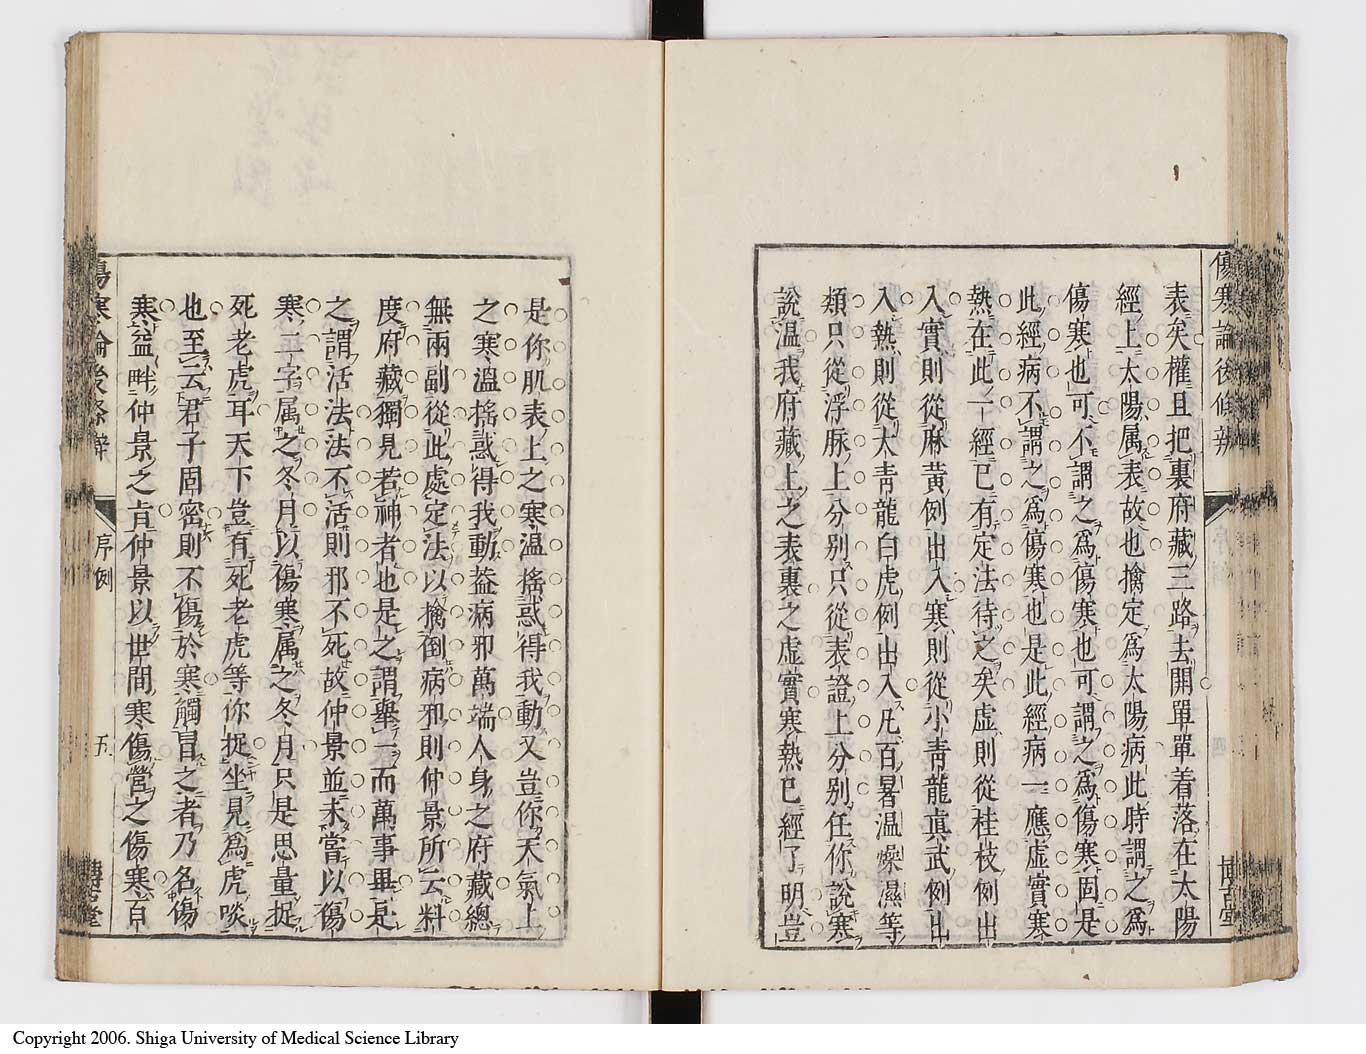 傷寒論後條辨
序例
博古堂
表矣權且把裏府藏三路去開單單着落在太陽
經上太陽属表故也擒定爲太陽病此時謂之爲
傷寒也可不謂之爲傷寒也可謂之爲傷寒固是
此經病不謂之爲傷寒也是此經病一應虚實寒
熱在此一經已有定法待之矣虚則從桂枝例出
入實則從麻黄例出入寒則從小青龍眞武例出
入熱則從大青龍白虎例出入凡百暑温燥濕等
類只從浮脉上分別只從表證上分別任你說寒
說温我府藏上之表裏之虚實寒熱已經了明豈
是你肌表上之寒温搖惑得我動又豈你天氣上
之寒温搖惑得我動益病邪萬端人身之府藏總
無兩副從此處定法以擒倒病邪則仲景所云料
度府藏獨見若神者也是之謂舉一而萬事畢是
之謂活法法不活則邪不死故仲景並未嘗以傷
寒二字属之冬月以傷寒属之冬月只是思量捉
死老虎耳天下豈有死老虎等你捉坐見爲虎啖
也至云君子固密則不傷於寒觸冒之者乃名傷
寒益畔仲景之㫖仲景以世間寒傷營之傷寒百
傷寒論後條辨
序例
五
博古堂
Copyright 2006. Shiga University of Medical Science Library